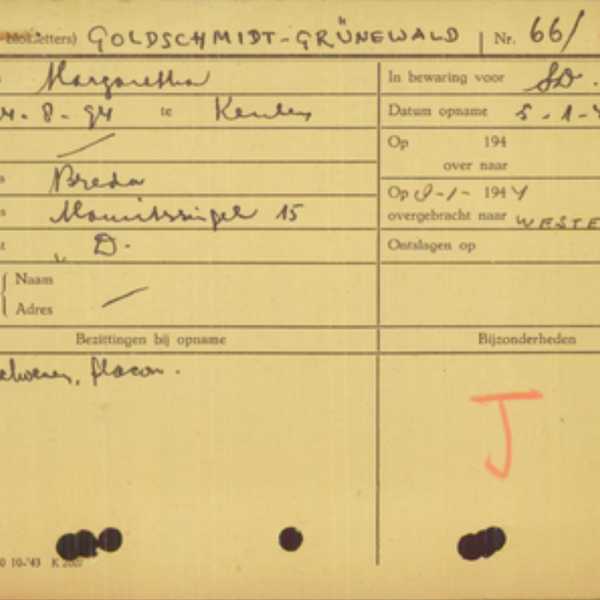 blokletters) GOLDSCHMIDT-GRÜNEWALD Nr. 66/
Margaretha In bewaring voor SD.
4-8-94 te Datum opname 5-1-4
Op 194
over naar
Breda Op 8-1-1944
Mauritssingel 15 overgebracht naar WESTE
D. Ontslagen op
Naam
Adres
Bezittingen bij opname Bijzonderheden
flacon.
J
0 10-'43 K 2007